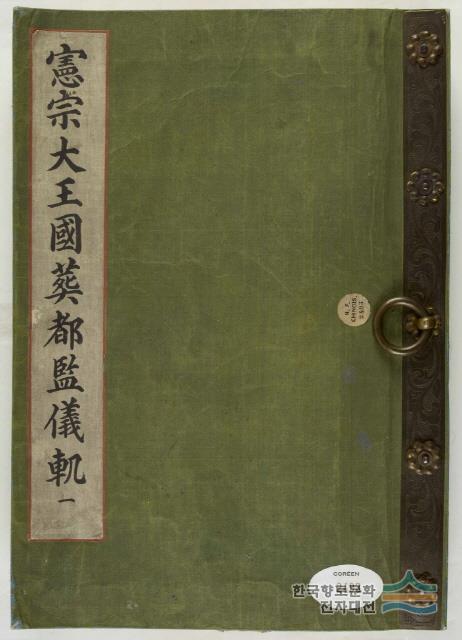 憲宗大王國葬都監儀軌一
N. F.
CHINOIS.
2503.
COREEN
한국향토문화
전자대전